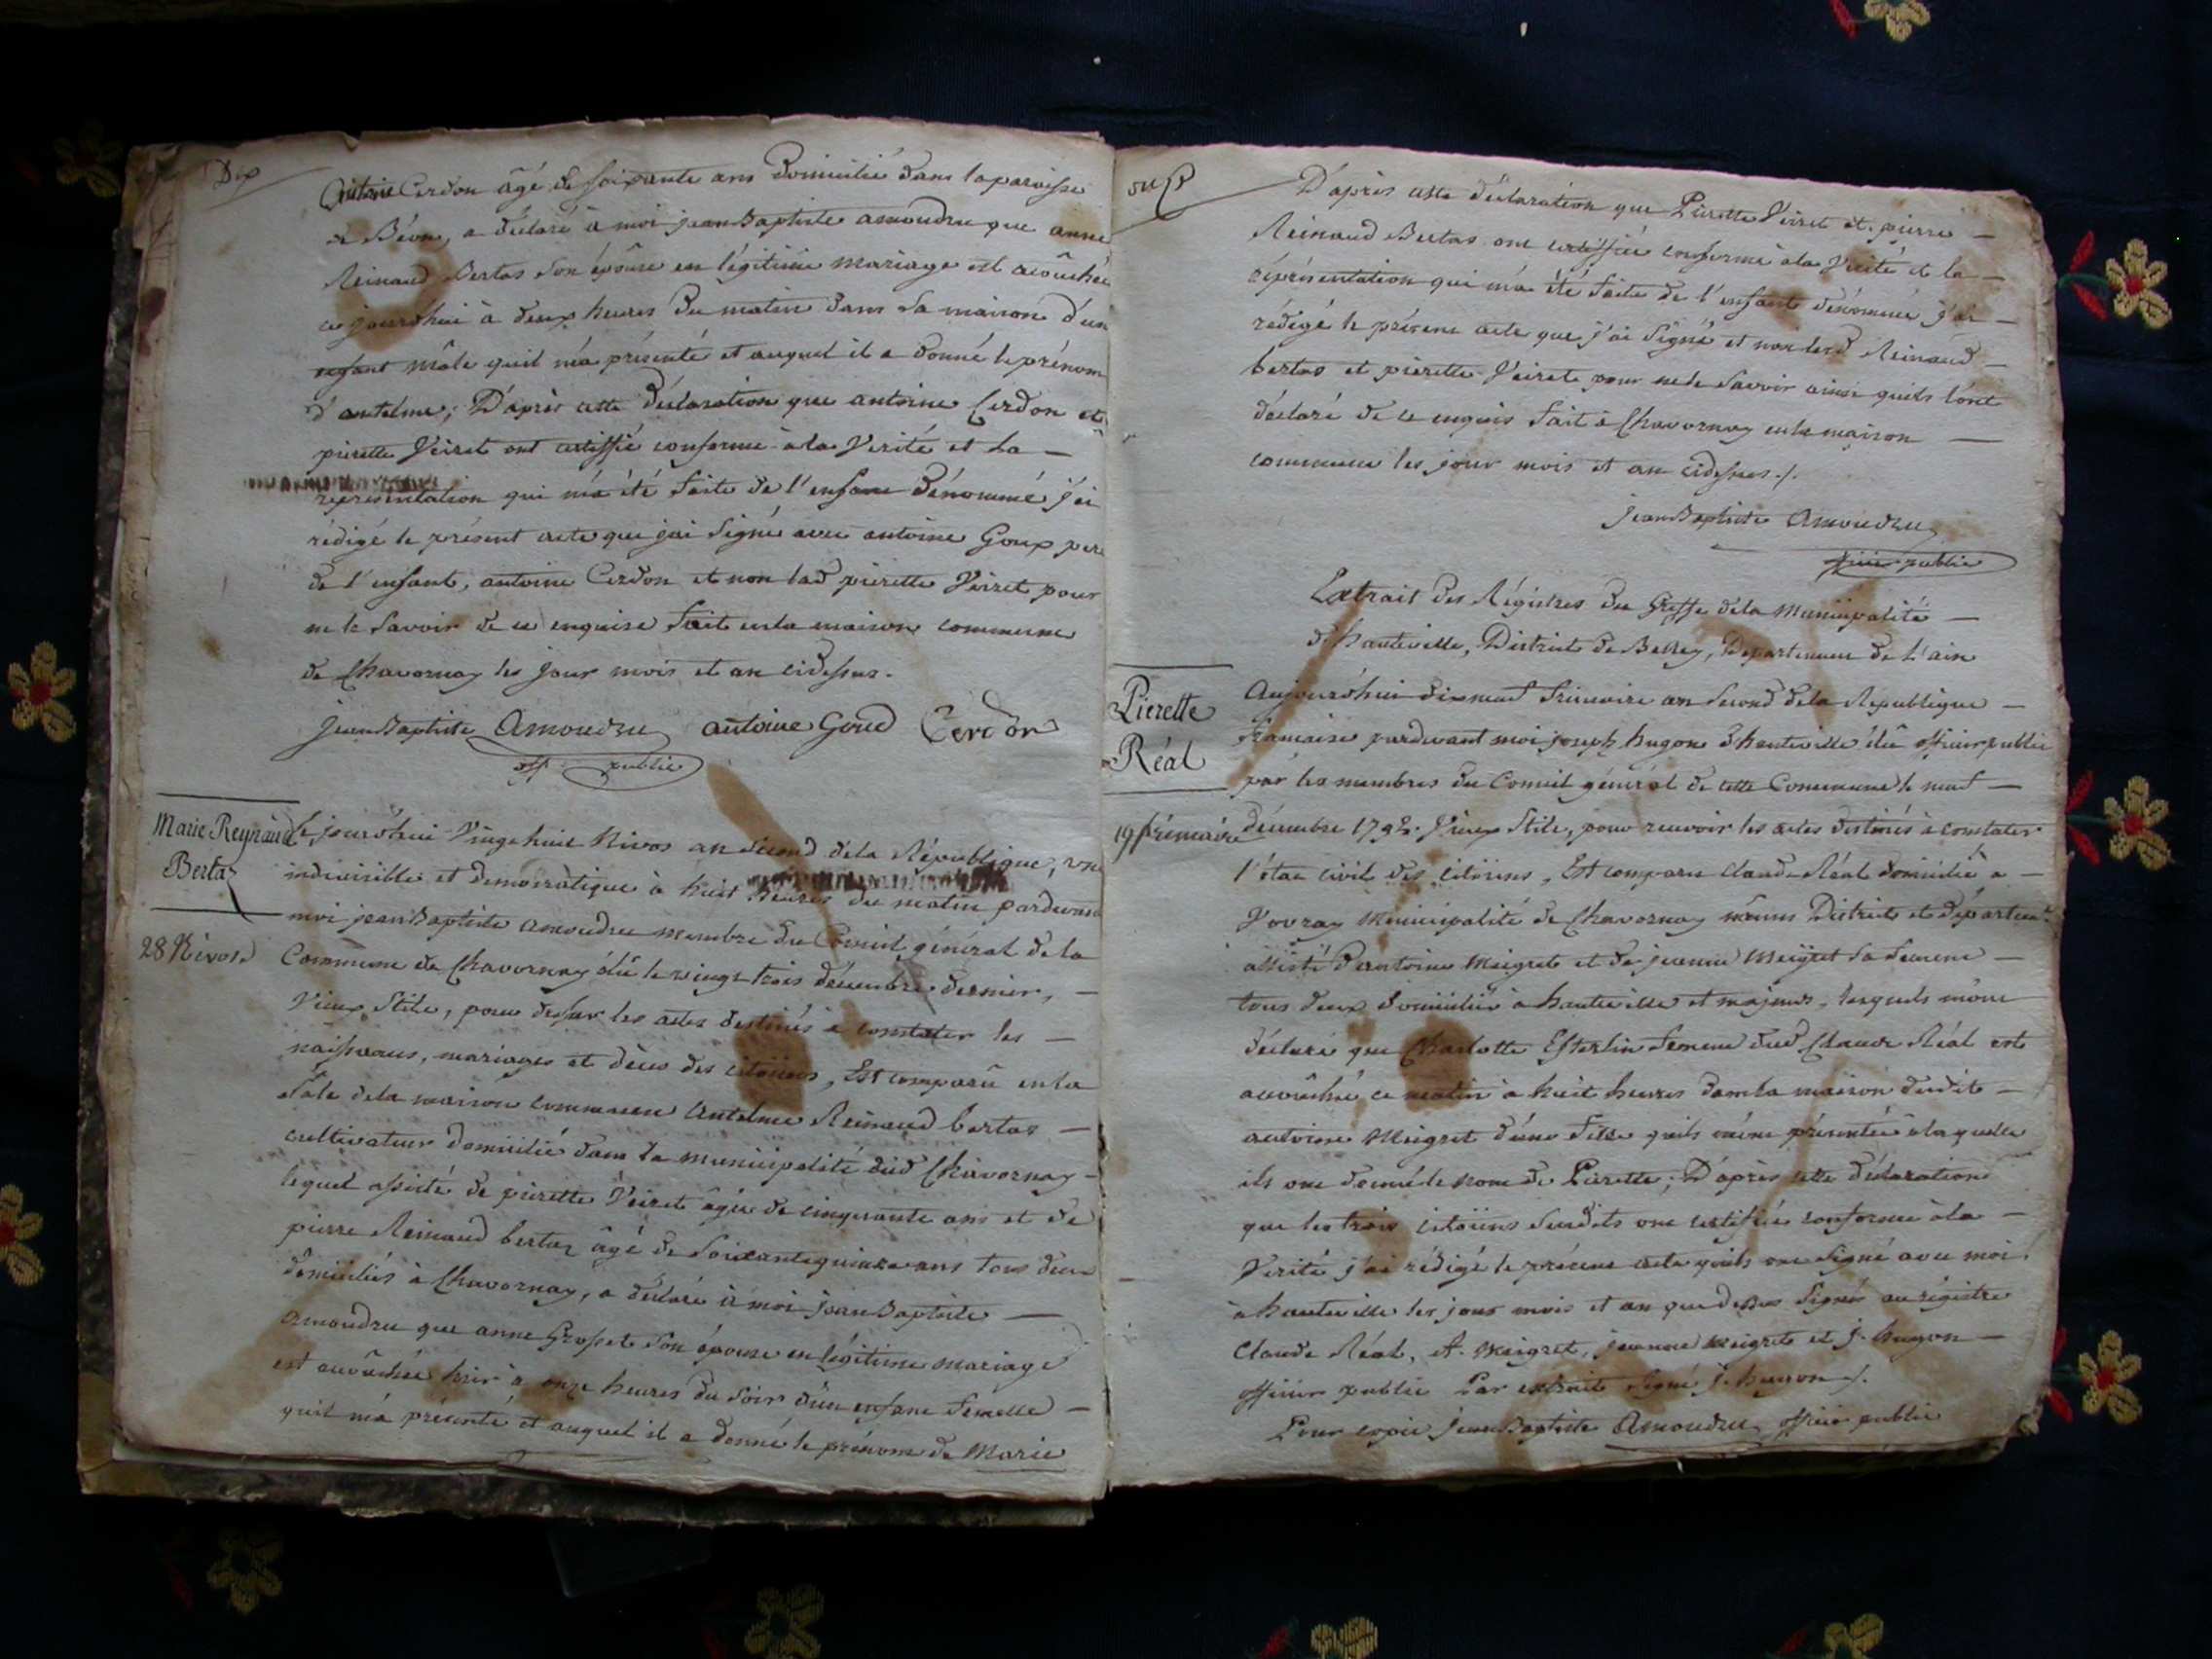 Dix
Antoine Cerdon âgé de soixante ans domicilié dans la paroisse
de Béon, a déclaré à moi jean Baptiste amoudru que anne
Reinaud Bertas son épouse en légitime mariage est acouchée
ce jourdhui à deux heures du matin dans sa maison d'un
enfant mâle quil m'a présenté et auquel il a donné le prénom
d'antelme; D'après cette déclaration que antoine Cerdon et
pierette Veiret ont certiffié conforme à la Verité et la
représentation qui m'a été faite de l'enfant dénommé j'ai
rédigé le présent acte que jai signé avec antoine Goux pere
de l'enfant, antoine Cerdon et non lad pierette Veiret pour
ne le savoir de ce enquise fait en la maison commune
de Chavornay les jour mois et an cidessus.
jean Baptiste Amoudru antoine Goud Cerdon
off public
Marie Reynaud
Bertaz
28 Nivos.
Ce jourdhui Vingt huit Nivos an second de la République, une
indivisible et democratique à huit heures du matin pardevant
moi jean Baptiste amoudru membre du Conseil général de la
Commune de Chavornay élû le vingt trois décembre dernier,
Vieux Stile, pour desser les actes destinés à constater les
naissances, mariages et décès des citoiens, Est comparû en la
sale de la maison commune Antelme Reinaud bertas
cultivateur domicilié dans la municipalité dud Chavornay
lequel assisté de pierette Veiret âgée de cinquante ans et de
pierre Reinaud bertaz âgé de soixante quinze ans tous deux
domiciliés à Chavornay, a déclaré à moi jean Baptiste
amoudru que anne Grosset son épouse en légitime mariage
est acouchée hier à onze heures du soir d'un enfant femelle
quil m'a présenté et auquel il a donné le prénom de Marie
onze
D'après cette déclaration que Pierette Veiret et pierre
Reinaud Bertas ont certiffiée conforme à la Verité et la
représentation qui m'a été faite de l'enfant dénommé j'ai
rédigé le présent acte que j'ai signé et non lesd Reinaud
bertas et pierette Veiret pour ne le savoir ainsi quils l'ont
déclaré de ce enquis fait à Chavornay en la maison
commune les jour mois et an cidessus ./.
jean Baptiste Amoudru
officier public
Extrait des Régistres du Greffe de la Municipalité
d'hauteville, District de Belley, Departement de l'ain
Pierette
Réal
19 frimaire
Aujourdhui dixneuf frimaire an second de la Republique
francaise pardevant moi joseph hugon d'hauteville élû officier public
par les membres du Conseil général de cette Commune le neuf
décembre 1792. Vieux Stile, pour recevoir les actes destinés à constater
l'état civil des citoiens, Est comparu Claude Réal domicilié à
Vovray Municipalité de Chavornay même District et départemt
assisté d'antoine Meigret et de jeanne Meigret sa femme
tous deux domiciliés à hauteville et majeurs, lesquels m'ont
déclaré que Charlotte Esterlin femme dud Claude Réal est
acouchée ce matin à huit heures dans la maison dudit
antoine Meigret d'une fille quils m'ont présentée à laquelle
ils ont donné le nom de Pierette; D'après cette déclaration
que les trois citoiens susdits ont certifiée conforme à la
Verité j'ai rédigé le présent acte quils ont signé avec moi
à hauteville les jour mois et an que dessus Signés au régistre
Claude Réal, A. Meigret, jeanne Meigret et j. hugon
officier public Par extrait Signé j. hugon ./.
Pour copie jean Baptiste Amoudru officier public